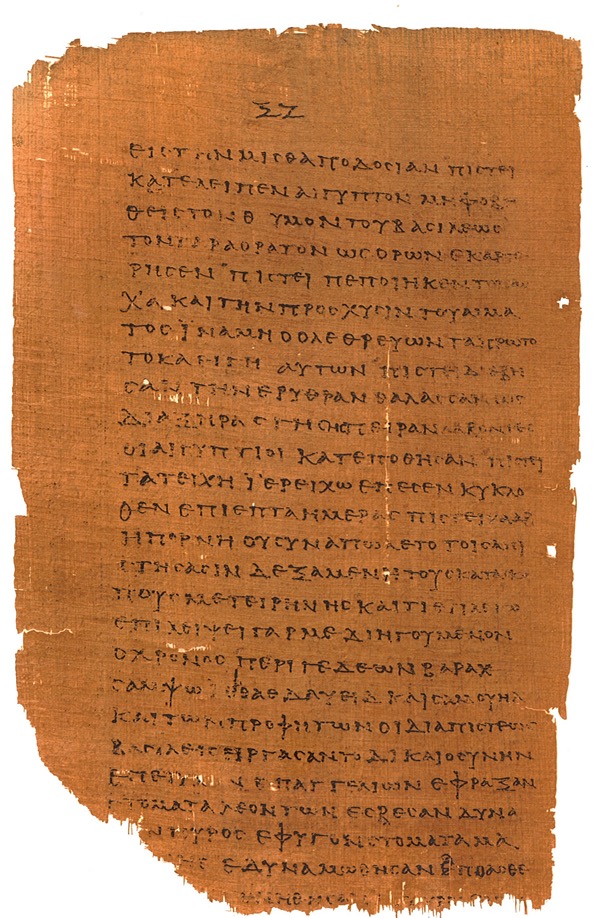 ΞΖ
ΕΙΣ ΤΗΝ ΜΙΣΘΑΠΟΔΟΣΙΑΝ ΠΙΣΤΕΙ
ΚΑΤΕΛΕΙΠΕΝ ΑΙΓΥΠΤΟΝ ΜΗ ΦΟΒΗ
ΘΕΙΣ ΤΟΝ ΘΥΜΟΝ ΤΟΥ ΒΑΣΙΛΕΩΣ
ΤΟΝ ΓΑΡ ΑΟΡΑΤΟΝ ΩΣ ΟΡΩΝ ΕΚΑΡΤΕ
ΡΗΣΕΝ ΠΙΣΤΕΙ ΠΕΠΟΙΗΚΕΝ ΤΟ ΠΑΣ
ΧΑ ΚΑΙ ΤΗΝ ΠΡΟΣΧΥΣΙΝ ΤΟΥ ΑΙΜΑ
ΤΟΣ ΪΝΑ ΜΗ Ο ΟΛΕΘΡΕΥΩΝ ΤΑ ΠΡΩΤΟ
ΤΟΚΑ ΘΙΓΗ ΑΥΤΩΝ ΠΙΣΤΕΙ ΔΙΕΒΗ
ΣΑΝ ΤΗΝ ΕΡΥΘΡΑΝ ΘΑΛΑΣΣΑΝ ΩΣ
ΔΙΑ ΞΗΡΑΣ ΓΗΣ ΗΣ ΠΕΙΡΑΝ ΛΑΒΟΝΤΕΣ
ΟΙ ΑΙΓΥΠΤΙΟΙ ΚΑΤΕΠΟΘΗΣΑΝ ΠΙΣΤΕΙ
ΤΑ ΤΕΙΧΗ ΪΕΡΕΙΧΩ ΕΠΕΣΕΝ ΚΥΚΛΩ
ΘΕΝ ΕΠΙ ΕΠΤΑ ΗΜΕΡΑΣ ΠΙΣΤΕΙ ΡΑΑΒ
Η ΠΟΡΝΗ ΟΥ ΣΥΝΑΠΩΛΕΤΟ ΤΟΙΣ ΑΠΙ
ΣΤΗΣΑΣΙΝ ΔΕΞΑΜΕΝΗ ΤΟΥΣ ΚΑΤΑΣΚΟ
ΠΟΥΣ ΜΕΤ ΕΙΡΗΝΗΣ ΚΑΙ ΤΙ ΕΤΙ ΛΕΓΩ
ΕΠΙΛΕΙΨΕΙ ΓΑΡ ΜΕ ΔΙΗΓΟΥΜΕΝΟΝ
Ο ΧΡΟΝΟΣ ΠΕΡΙ ΓΕΔΕΩΝ ΒΑΡΑΚ
ΣΑΜΨΩ ΙΕΦΘΑΕ ΔΑΥΕΙΔ ΚΑΙ ΣΑΜΟΥΗΛ
ΚΑΙ ΤΩΝ ΠΡΟΦΗΤΩΝ ΟΙ ΔΙΑ ΠΙΣΤΕΩΣ
ΒΑΣΙΛΕΙΣ ΕΙΡΓΑΣΑΝΤΟ ΔΙΚΑΙΟΣΥΝΗΝ
ΕΠΕΤΥΧΟΝ ΕΠΑΓΓΕΛΙΩΝ ΕΦΡΑΞΑΝ
ΣΤΟΜΑΤΑ ΛΕΟΝΤΩΝ ΕΣΒΕΣΑΝ ΔΥΝΑ
ΝΠΥΡΟΣ ΕΦΥΓΟΝ ΣΤΟΜΑΤΑ ΜΑ
ΕΔΥΝΑΜΩΘΗΣΑΝ ΑΠΟ ΑΣΘΕ